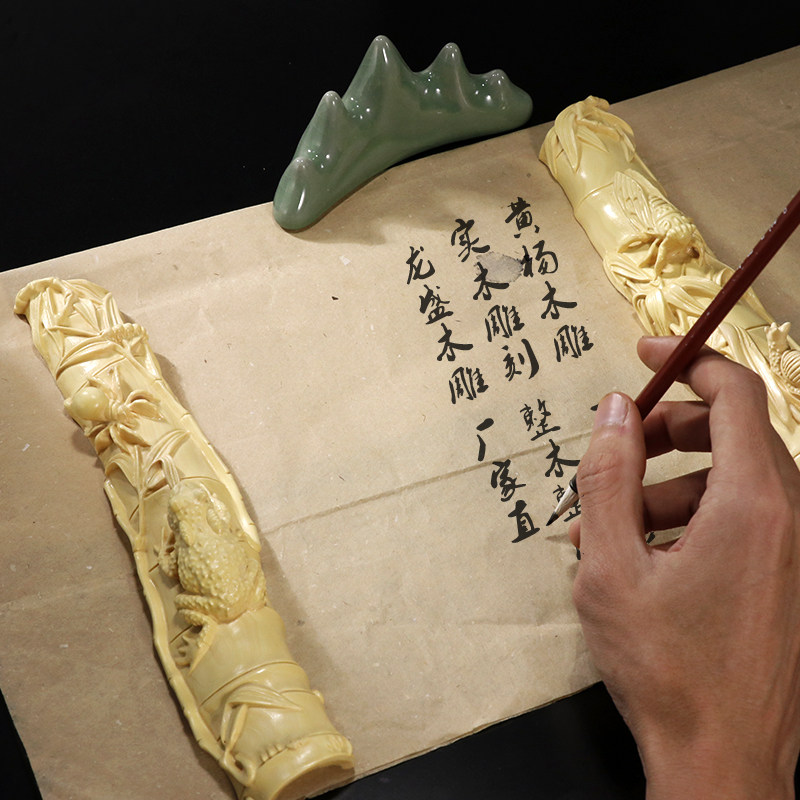 黄杨木雕
实木雕刻 整木整
龙盛木雕 厂家直